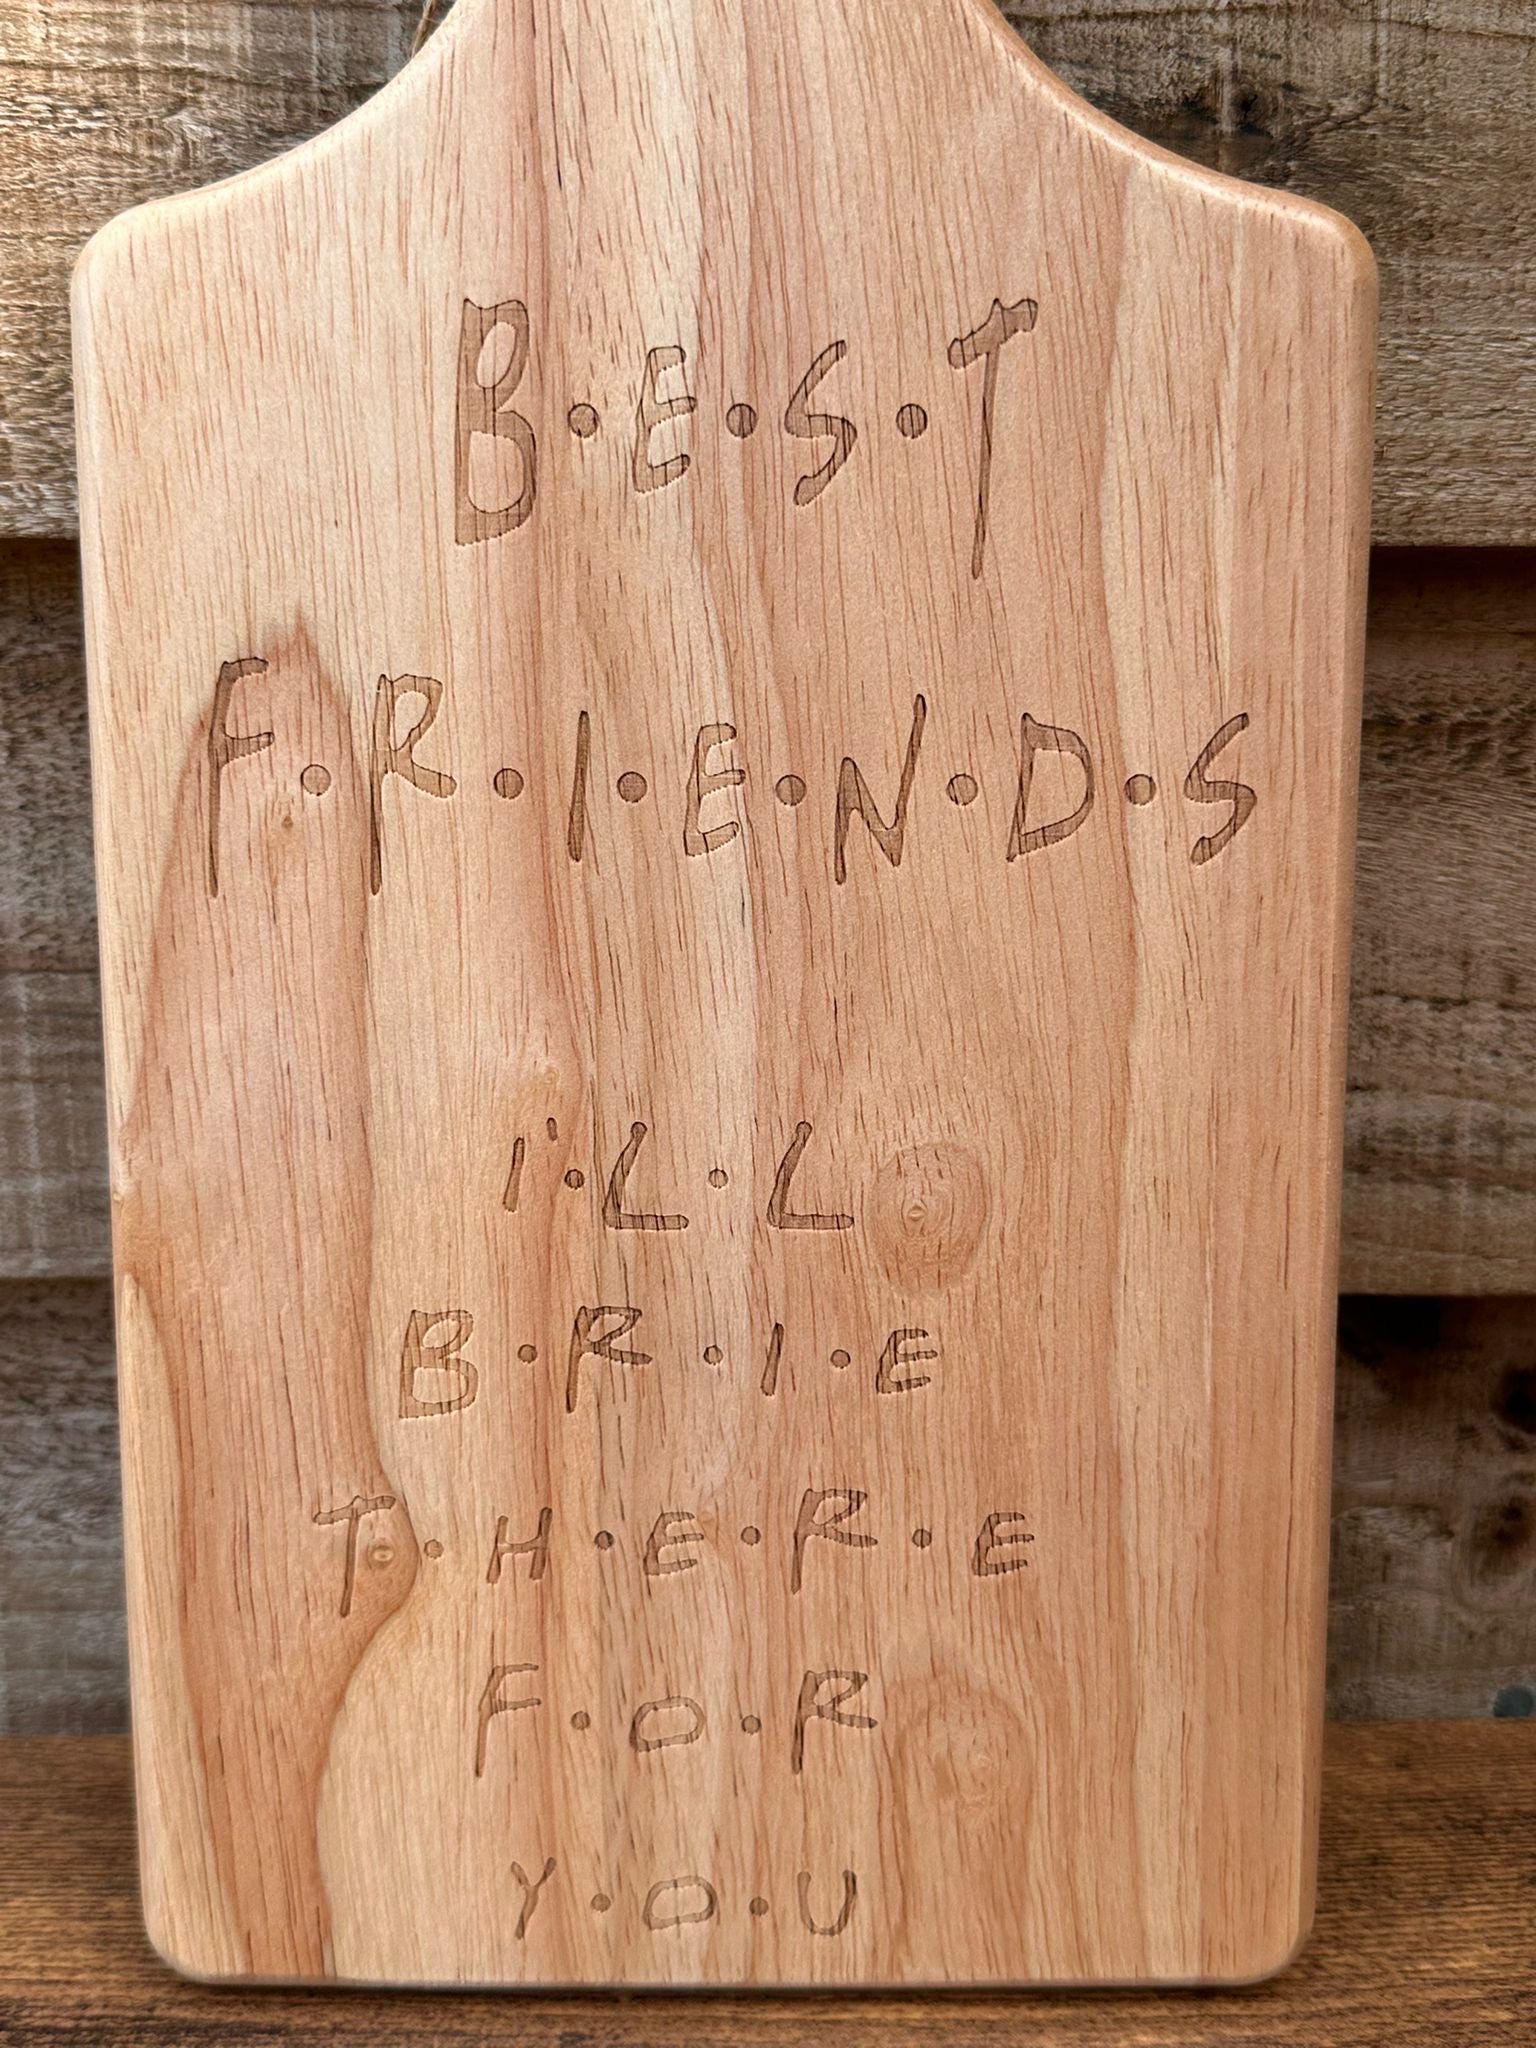 B·E·S·T
F·R·I·E·N·D·S
I'·L·L
B·R·I·E
T·H·E·R·E
F·O·R
Y·O·U